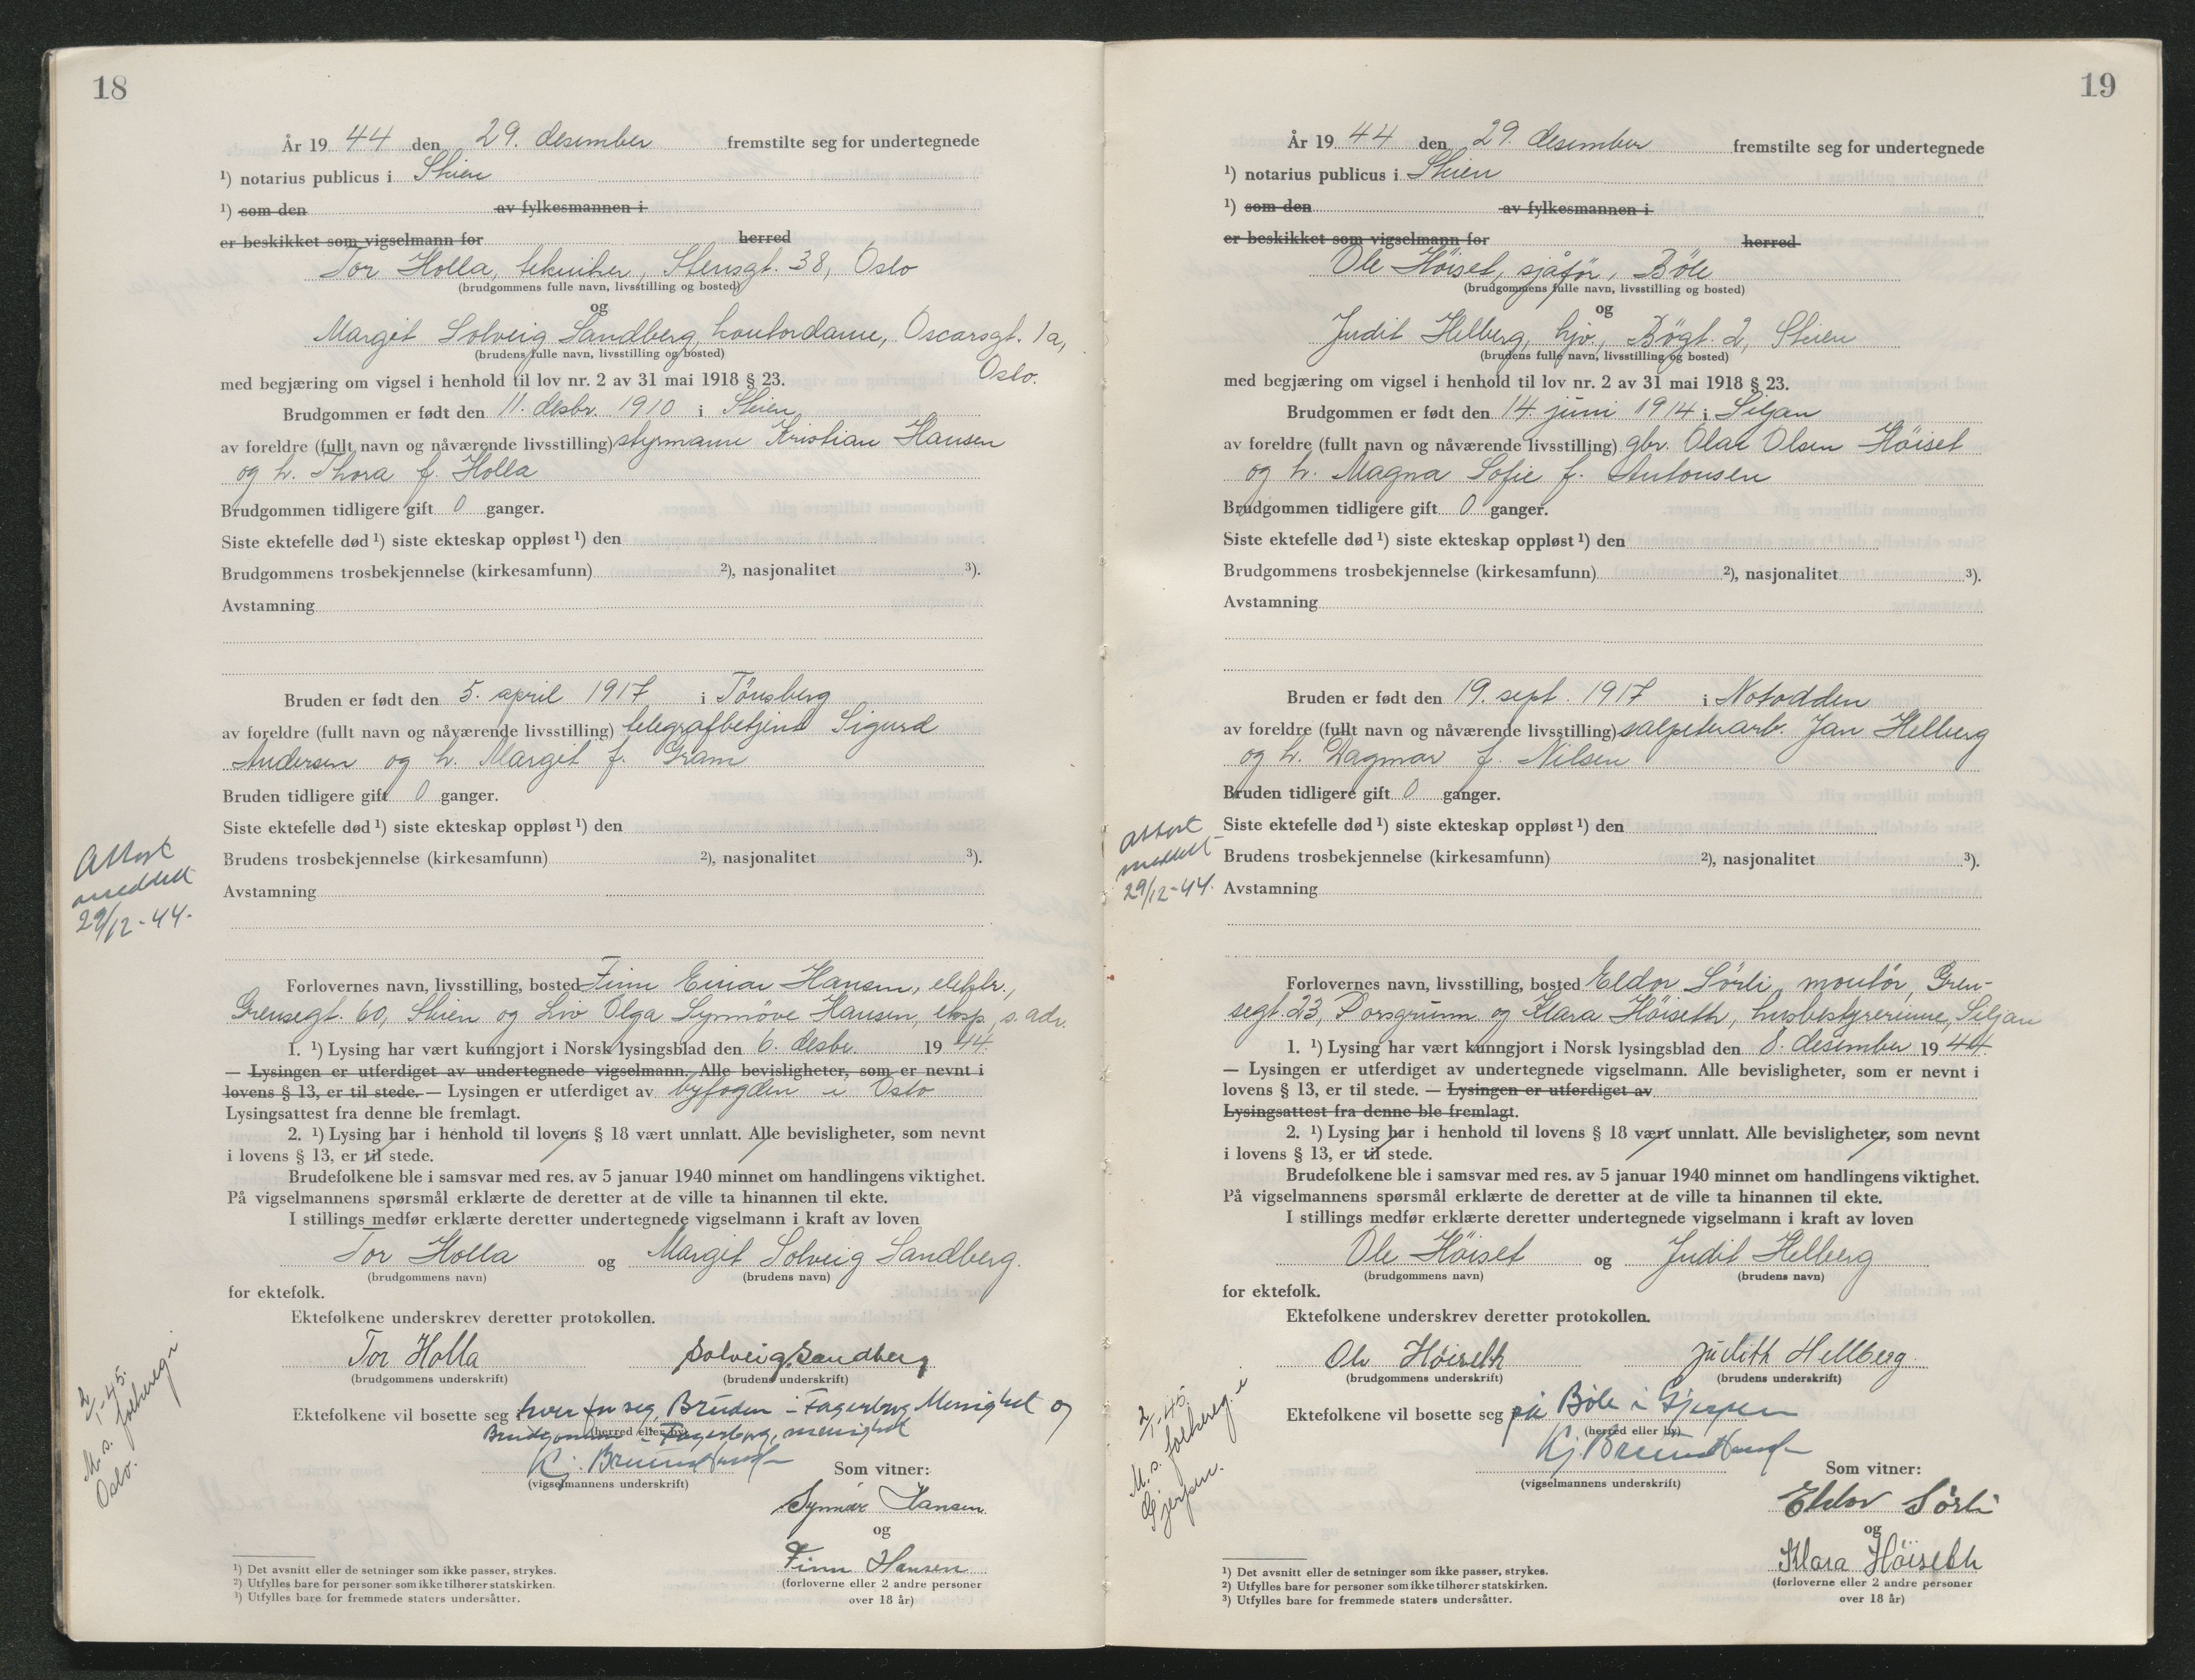 18
År 19 44 den 29. desember fremstilte seg for undertegnede
¹) notarius publicus i Skien
¹) som den av fylkesmannen i
er beskikket som vigselmann for herred
Tor Holla, tekniker, Stensgt. 38, Oslo
(brudgommens fulle navn, livsstilling og bosted)
og
Margit Solveig Sandberg, kontordame, Oscarsgt. 1a,
(brudens fulle navn, livsstilling og bosted)
Oslo.
med begjæring om vigsel i henhold til lov nr. 2 av 31 mai 1918 § 23.
Brudgommen er født den 11. desbr. 1910 i Skien
av foreldre (fullt navn og nåværende livsstilling) styrmann Kristian Hansen
og h. Thora f. Holla
Brudgommen tidligere gift 0 ganger.
Siste ektefelle død ¹) siste ekteskap oppløst ¹) den
Brudgommens trosbekjennelse (kirkesamfunn) ²), nasjonalitet ³).
Avstamning
Bruden er født den 5. april 1917 i Tönsberg
av foreldre (fullt navn og nåværende livsstilling) telegrafbetjent Sigurd
Andersen og h. Margit f. Gram
Bruden tidligere gift 0 ganger.
Siste ektefelle død ¹) siste ekteskap oppløst ¹) den
Brudens trosbekjennelse (kirkesamfunn) ²), nasjonalitet ³).
Avstamning
Attest
meddelt
29/12-44.
Forlovernes navn, livsstilling, bosted Finn Einar Hansen, elektr.,
Grensegt. 60, Skien og Liv Olga Synnöve Hansen, eksp., s. adr.
1. ¹) Lysing har vært kunngjort i Norsk lysingsblad den 6. desbr. 19 44.
— Lysingen er utferdiget av undertegnede vigselmann. Alle bevisligheter, som er nevnt i
lovens § 13, er til stede. — Lysingen er utferdiget av byfogden i Oslo
Lysingsattest fra denne ble fremlagt.
2. ¹) Lysing har i henhold til lovens § 18 vært unnlatt. Alle bevisligheter, som nevnt
i lovens § 13, er til stede.
Brudefolkene ble i samsvar med res. av 5 januar 1940 minnet om handlingens viktighet.
På vigselmannens spørsmål erklærte de deretter at de ville ta hinannen til ekte.
I stillings medfør erklærte deretter undertegnede vigselmann i kraft av loven
Tor Holla og Margit Solveig Sandberg.
(brudgommens navn) (brudens navn)
for ektefolk.
Ektefolkene underskrev deretter protokollen.
Tor Holla Solveig Sandberg
(brudgommens underskrift) (brudens underskrift)
Ektefolkene vil bosette seg hver for seg, Bruden - Fagerborg Menighet og
(herred eller by)
Brudgommen - Fagerborg, menighet
Kj. Bruun
(vigselmannens underskrift)
Som vitner:
Synnöv Hansen
og
Finn Hansen
(forloverne eller 2 andre personer
over 18 år)
2/1-45.
M. s. folkereg. i
Oslo.
¹) Det avsnitt eller de setninger som ikke passer, strykes.
²) Utfylles bare for personer som ikke tilhører statskirken.
³) Utfylles bare for fremmede staters undersåtter.
19
År 19 44 den 29. desember fremstilte seg for undertegnede
¹) notarius publicus i Skien
¹) som den av fylkesmannen i
er beskikket som vigselmann for herred
Ole Höiset, sjåför, Böle
(brudgommens fulle navn, livsstilling og bosted)
og
Judit Helberg, hjv., Bögt. 2, Skien
(brudens fulle navn, livsstilling og bosted)
med begjæring om vigsel i henhold til lov nr. 2 av 31 mai 1918 § 23.
Brudgommen er født den 14. juni 1914 i Siljan
av foreldre (fullt navn og nåværende livsstilling) gbr. Olav Olsen Höiset
og h. Magna Sofie f. Antonsen
Brudgommen tidligere gift 0 ganger.
Siste ektefelle død ¹) siste ekteskap oppløst ¹) den
Brudgommens trosbekjennelse (kirkesamfunn) ²), nasjonalitet ³).
Avstamning
Bruden er født den 19. sept. 1917 i Notodden
av foreldre (fullt navn og nåværende livsstilling) salpeterarb. Jan Helberg
og h. Dagmar f. Nilsen
Bruden tidligere gift 0 ganger.
Siste ektefelle død ¹) siste ekteskap oppløst ¹) den
Brudens trosbekjennelse (kirkesamfunn) ²), nasjonalitet ³).
Avstamning
Attest
meddelt
29/12-44.
Forlovernes navn, livsstilling, bosted Eldor Sörli, montör, Gren-
segt. 23, Porsgrunn og Klara Höiseth, husbestyrerinne, Siljan
1. ¹) Lysing har vært kunngjort i Norsk lysingsblad den 8. desember 19 44.
— Lysingen er utferdiget av undertegnede vigselmann. Alle bevisligheter, som er nevnt i
lovens § 13, er til stede. — Lysingen er utferdiget av
Lysingsattest fra denne ble fremlagt.
2. ¹) Lysing har i henhold til lovens § 18 vært unnlatt. Alle bevisligheter, som nevnt
i lovens § 13, er til stede.
Brudefolkene ble i samsvar med res. av 5 januar 1940 minnet om handlingens viktighet.
På vigselmannens spørsmål erklærte de deretter at de ville ta hinannen til ekte.
I stillings medfør erklærte deretter undertegnede vigselmann i kraft av loven
Ole Höiset og Judit Helberg
(brudgommens navn) (brudens navn)
for ektefolk.
Ektefolkene underskrev deretter protokollen.
Ole Höiseth Judith Hellberg
(brudgommens underskrift) (brudens underskrift)
Ektefolkene vil bosette seg på Böle i Gjerpen
(herred eller by)
Kj. Bruun
(vigselmannens underskrift)
Som vitner:
Eldor Sörli
og
Klara Höiseth
(forloverne eller 2 andre personer
over 18 år)
2/1-45.
M. s. folkereg. i
Gjerpen.
¹) Det avsnitt eller de setninger som ikke passer, strykes.
²) Utfylles bare for personer som ikke tilhører statskirken.
³) Utfylles bare for fremmede staters undersåtter.